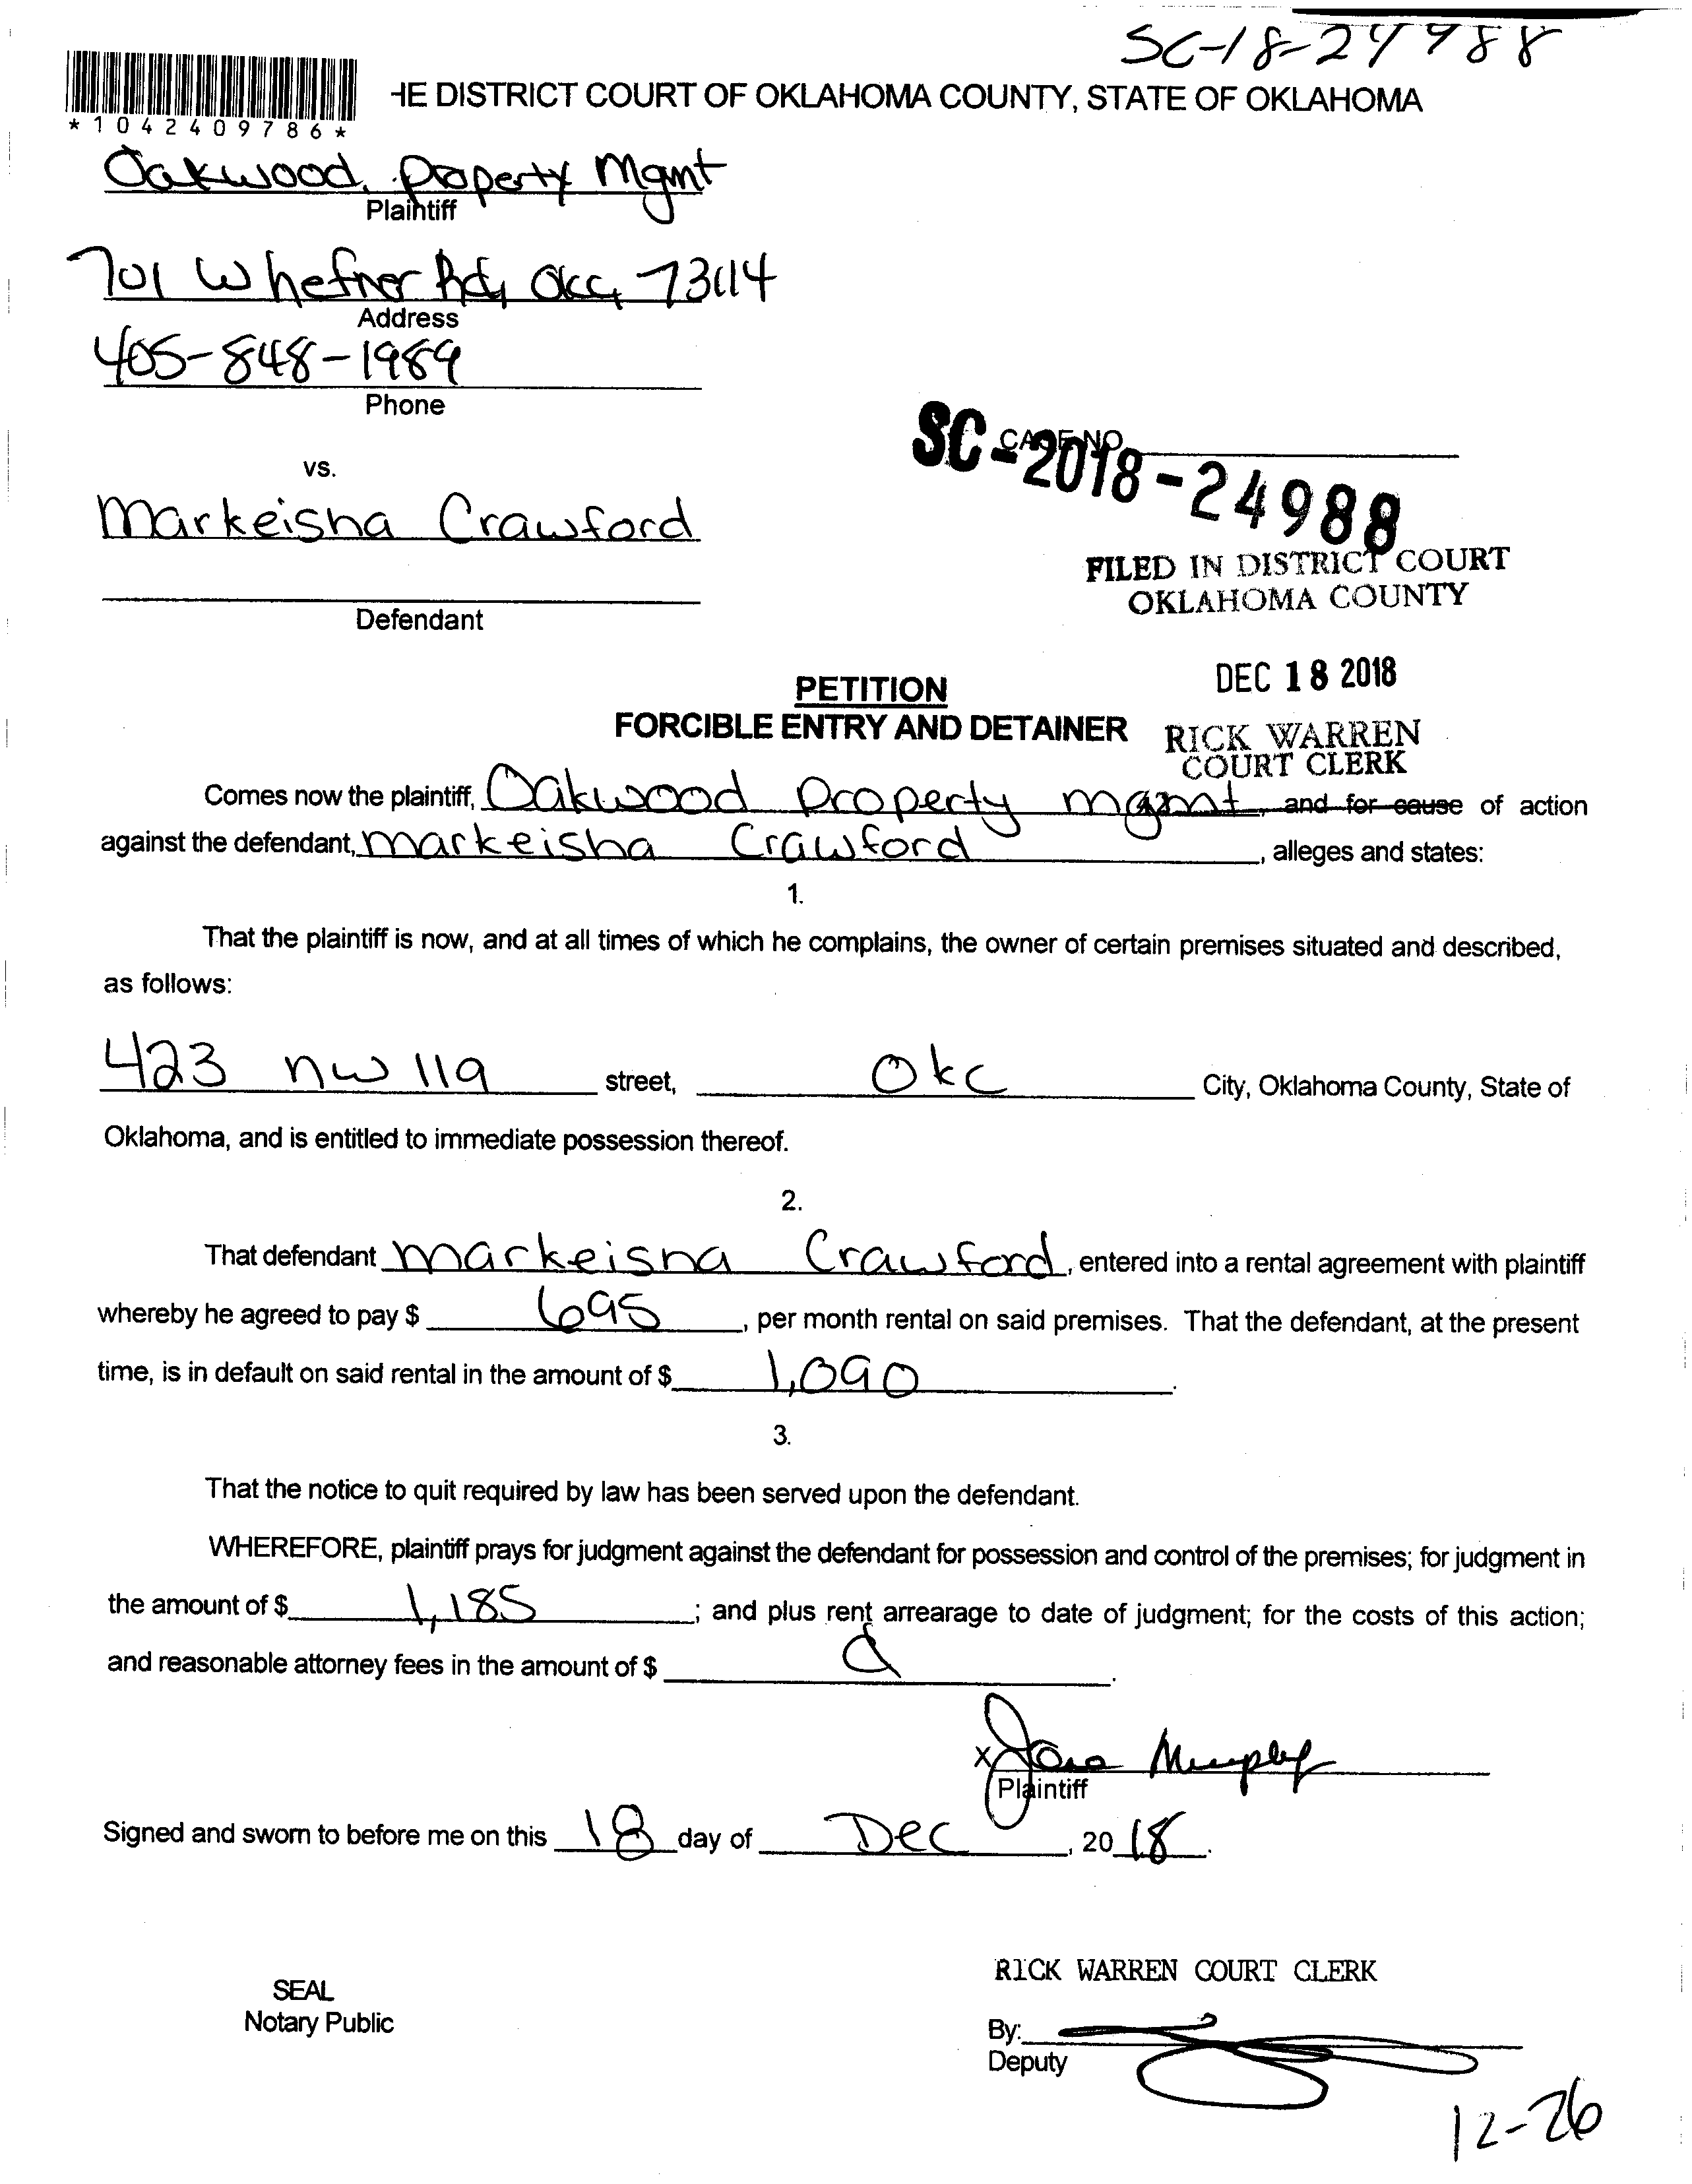 SC-18-24988
HE DISTRICT COURT OF OKLAHOMA COUNTY, STATE OF OKLAHOMA
*1042409786*
Oakwood Property Mgmt
Plaintiff
701 W hefner Rd, OKC, 73114
Address
405-848-1989
Phone
CASE NO.
SC-2018-24988
vs.
Markeisha Crawford
FILED IN DISTRICT COURT
OKLAHOMA COUNTY
Defendant
DEC 18 2018
PETITION
FORCIBLE ENTRY AND DETAINER
RICK WARREN
COURT CLERK
Comes now the plaintiff, Oakwood Property mgmt, and for cause of action
against the defendant, markeisha Crawford, alleges and states:
1.
That the plaintiff is now, and at all times of which he complains, the owner of certain premises situated and described,
as follows:
423 nw 119 street, Okc City, Oklahoma County, State of
Oklahoma, and is entitled to immediate possession thereof.
2.
That defendant markeisha Crawford, entered into a rental agreement with plaintiff
whereby he agreed to pay $ 695, per month rental on said premises. That the defendant, at the present
time, is in default on said rental in the amount of $ 1,090.
3.
That the notice to quit required by law has been served upon the defendant.
WHEREFORE, plaintiff prays for judgment against the defendant for possession and control of the premises; for judgment in
the amount of $ 1,185; and plus rent arrearage to date of judgment; for the costs of this action;
and reasonable attorney fees in the amount of $
x Murphy
Plaintiff
Signed and sworn to before me on this 18 day of Dec, 2018.
RICK WARREN COURT CLERK
SEAL
Notary Public
By:
Deputy
12-26